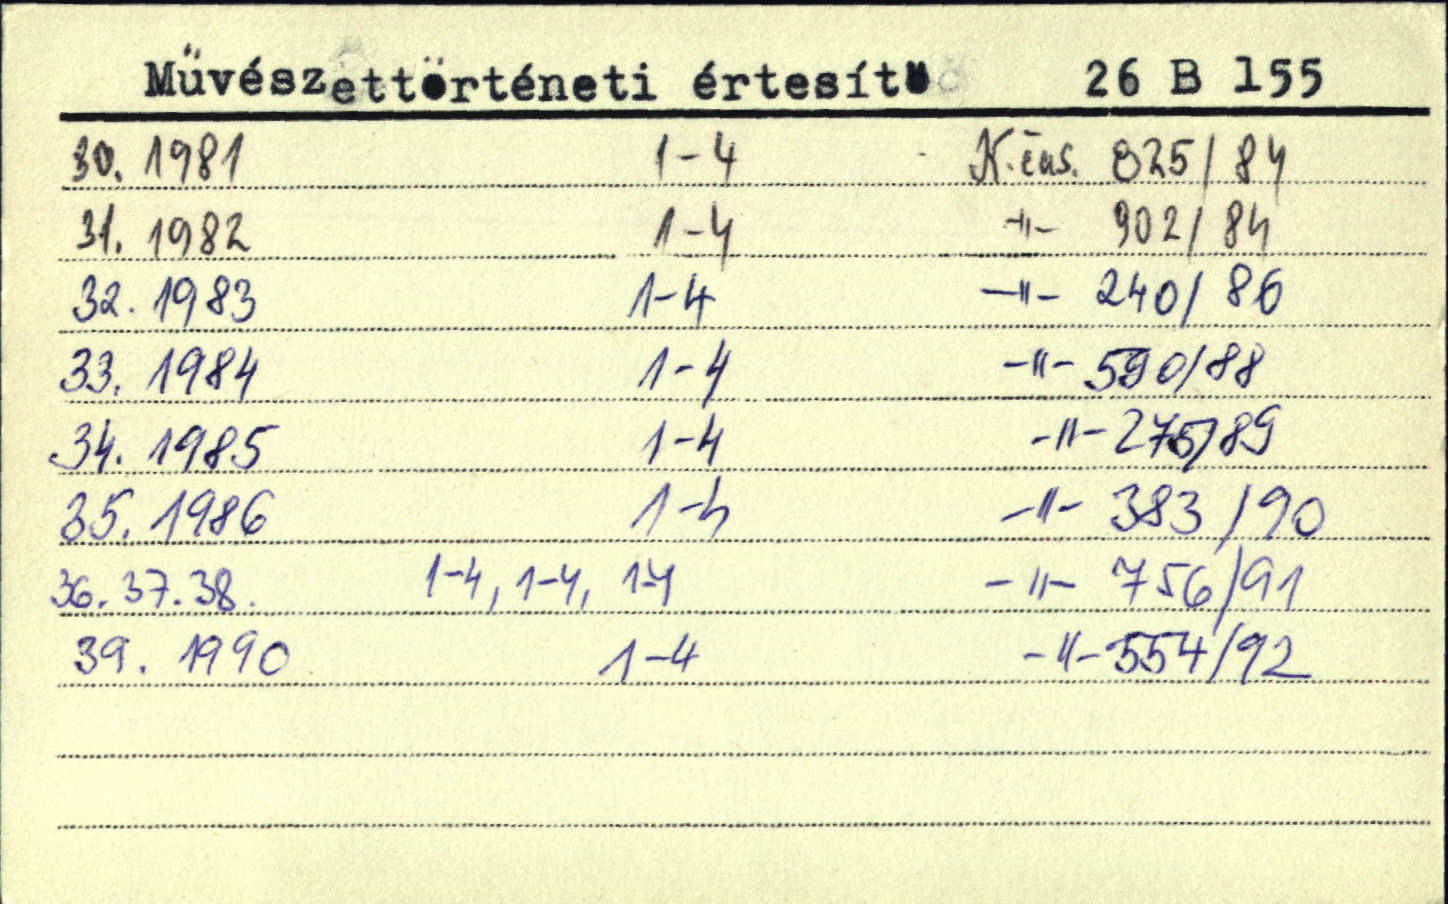 Művészettörténeti értesítő 26 B 155
30. 1981 1-4 825/84
31. 1982 1-4 -"- 902/84
32. 1983 1-4 -"- 240/86
33. 1984 1-4 -"- 590/88
34. 1985 1-4 -"- 275/89
35. 1986 1-4 -"- 383/90
36. 37. 38. 1-4, 1-4, 1-4 -"- 756/91
39. 1990 1-4 -"- 554/92